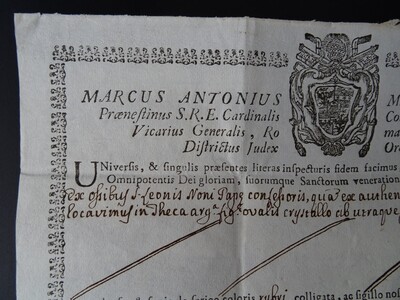 MARCUS ANTONIUS M
Prænestinus S. R. E. Cardinalis Co
Vicarius Generalis, Ro ma
Districtus Judex Or
Universis, & singulis præsentes literas inspecturis fidem facimus
Omnipotentis Dei gloriam, suorumque Sanctorum veneration
ex ossibus S. Leonis Noni Papæ confessoris, quæ ex authen
locavimus in Theca arg.a fig. ovalis crystallo ab utraque
de serico coloris rubri colligata, ac sigillo nos